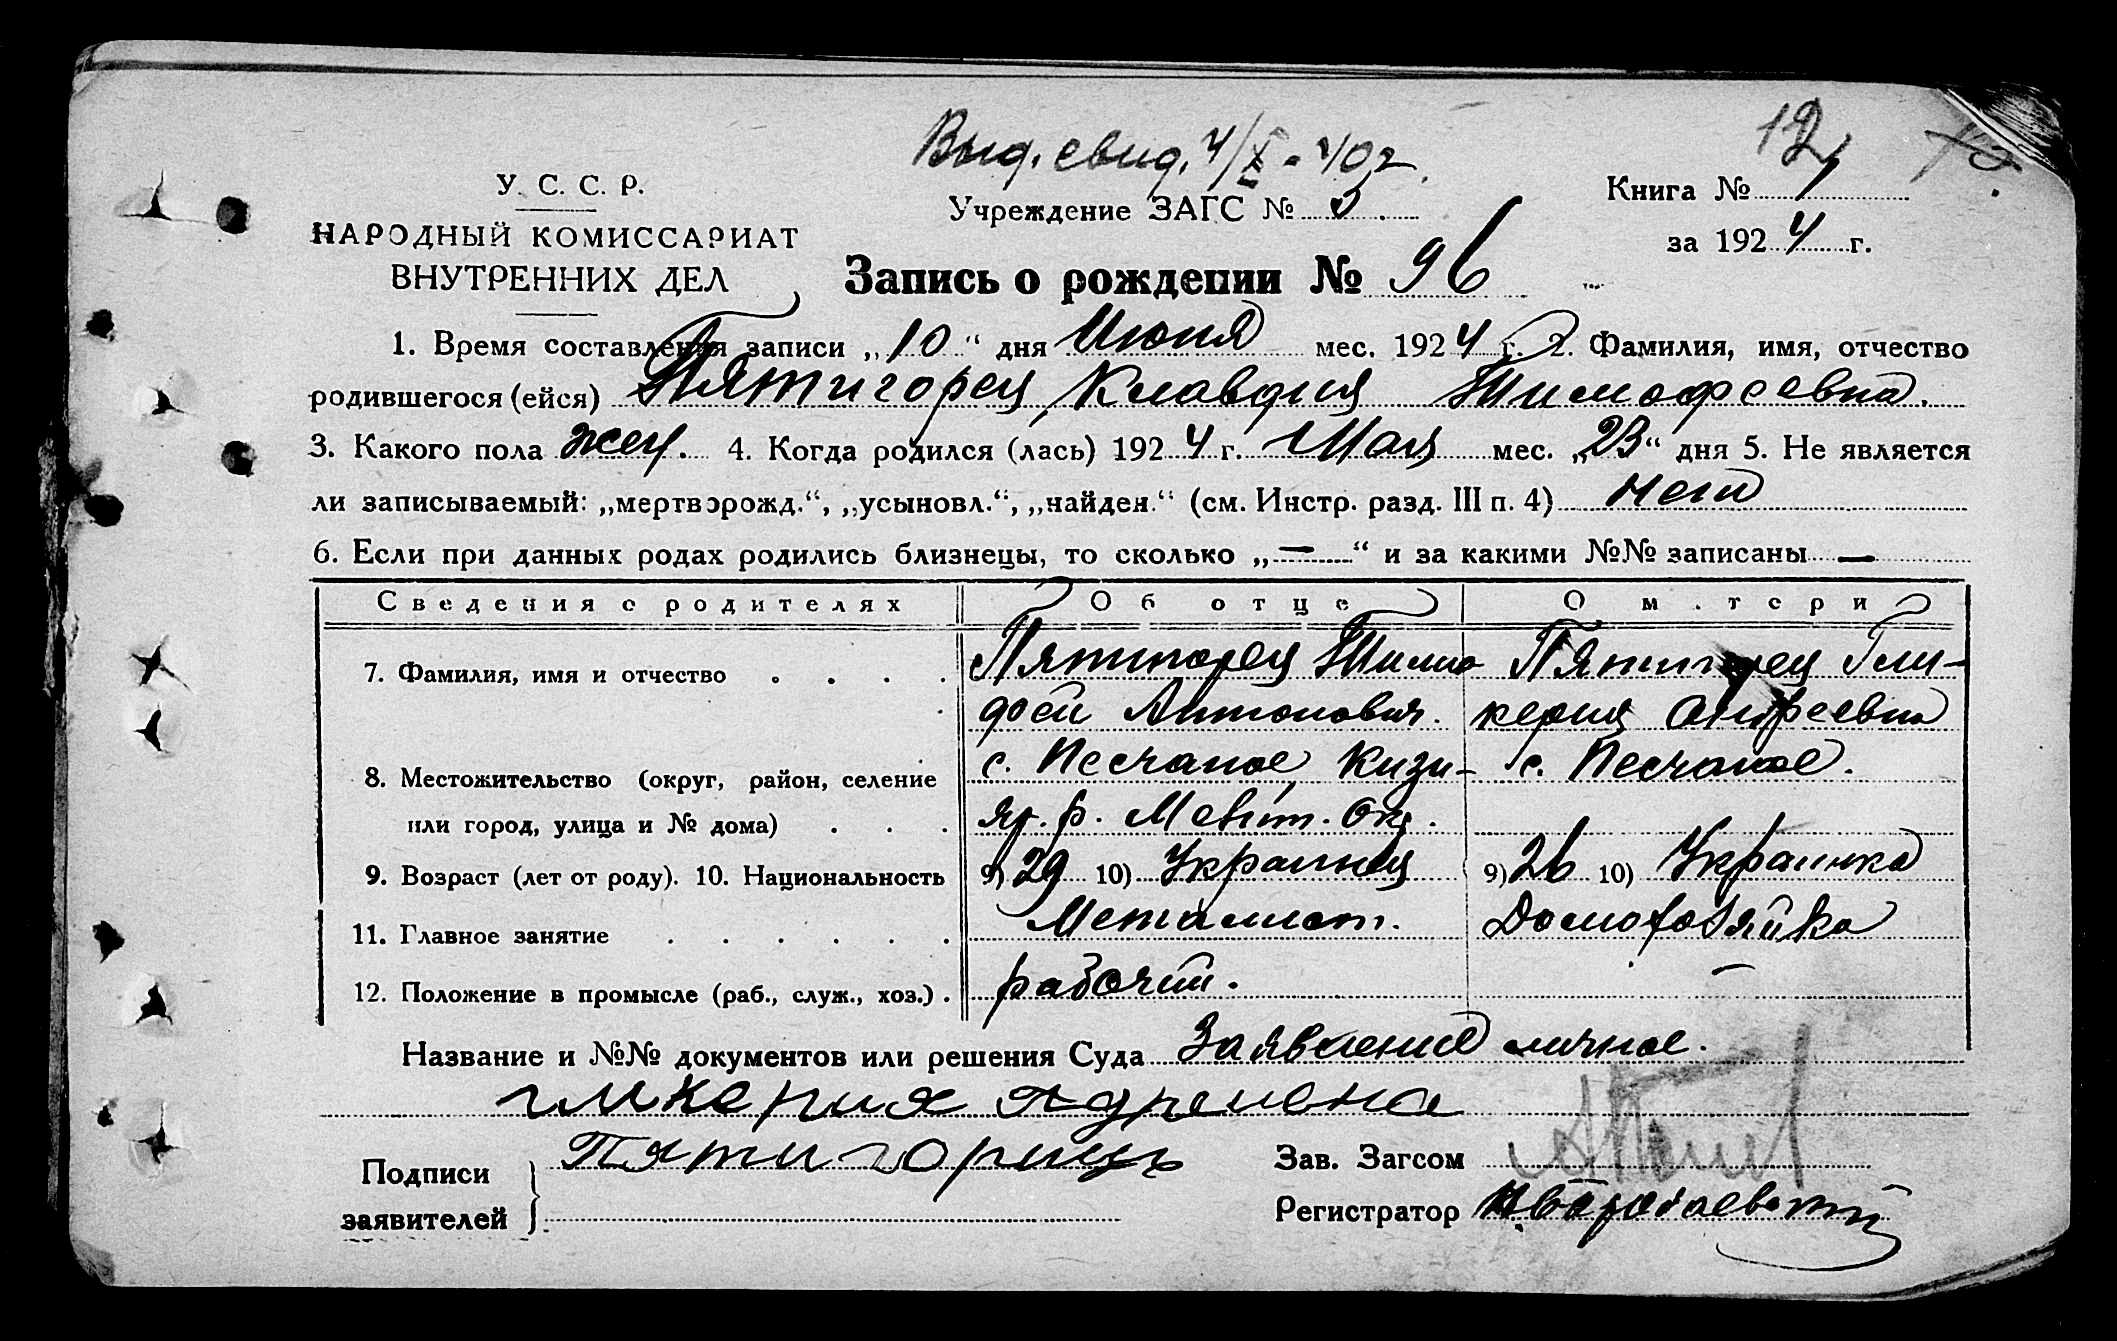 Выд. свид. 4/X - 40 г.
12
У. С. С. Р.
НАРОДНЫЙ КОМИССАРИАТ
ВНУТРЕННИХ ДЕЛ
Учреждение ЗАГС №
Книга № 1
за 1924 г.
Запись о рождении № 96
1. Время составления записи „10“ дня Июня мес. 1924 г. 2. Фамилия, имя, отчество
родившегося (ейся) Пятигорец Клавдия Тимофеевна.
3. Какого пола жен. 4. Когда родился (лась) 1924 г. Мая мес. „23“ дня 5. Не является
ли записываемый: „мертворожд.“, „усыновл.“, „найден.“ (см. Инстр. разд. III п. 4) нет
6. Если при данных родах родились близнецы, то сколько „—“ и за какими №№ записаны —
Сведения о родителях Об отце О матери
7. Фамилия, имя и отчество . . . . Пятигорец Тимо- Пятигорец Гли-
фей Антонович. керия Андреевна
8. Местожительство (округ, район, селение с. Песчаное Кизи- с. Песчаное.
или город, улица и № дома) . . . яр. р. Мелит. Окр.
9. Возраст (лет от роду). 10. Национальность 9) 29 10) Украинец 9) 26 10) Украинка
11. Главное занятие . . . . . . Металист. Домохозяйка
12. Положение в промысле (раб., служ., хоз.) . рабочий. —
Название и №№ документов или решения Суда Заявление личное.
гликерия Адреивна
Подписи заявителей Пятигорицъ
Зав. Загсом
Регистратор